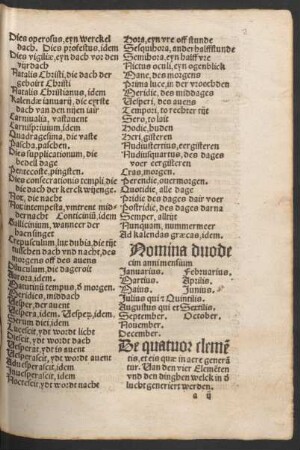 Dies operosus, eyn werckel
dach. Dies profestus, idem
Dies vigiliæ, eyn dach vor den
vijrdach
Natalis Christi, die dach der
geburt Christi
Natalis Christianus, idem
Kalendæ ianuarij, die eyrste
dach van den nijen iair
Carnivalia, vastavent
Carnispriuium, idem
Quadragesima, die vaste
Pascha, paschen.
Dies supplicationum, die
bededach
Pentecoste, pingsten.
Dies consecrationis templi, die
dach der kerck wijenge.
Nox, die nacht
Nox intempesta, vmtrent mid
dernacht Conticiniũ, idem
Gallicinium, wanneer der
haen singet
Crepusculum, lux dubia, die tijt
tusschen dach vnd nacht, des
morgens oft des auens
Diluculum, die dageroit
Aurora, idem
Matutinũ tempus, d morgen.
Meridies, middach
Vesper, der auent
Vespera, idem. Vesperæ, idem.
Serum diei, idem
Lucescit, ydt wordt licht
Vesperat, ydt is auent
Vesperascit, ydt wordt auent
Aduesperascit, idem
Noctescit, ydt wordt nacht
Hora, eyn vre off stunde
Sesquihora, anderhalff stunde
Semihora, eyn halff vre
Nictus oculi, eyn ogenblick
Mane, des morgens
Prima luce, in der vroechden
Meridie, des middages
Vesperi, des auens
Tempori, to rechter tijt
Sero, to lait
Hodie, huden
Heri, gisteren
Nudiustertius, eergisteren
Nudiusquartus, des dages
voer eergisteren
Cras, morgen.
Perendie, ouermorgen.
Quotidie, alle dage
Pridie, des dages dair voer
Postridie, des dages darna
Semper, alltijt
Nunquam, nummermeer
Ad kalendas græcas, idem.
Nomina duode
cim anni mensium
Januarius. Februarius.
Martius. Aprilis.
Maius. Junius.
Julius qui & Quintilis.
Augustus qui et Sextilis.
September. October.
Nouember.
December.
De quatuor elemẽ
tis, et eis quæ in aere genera
tur. Van den vier Elemẽten
vnd den dinghen welck in d
lucht generiert werden.
a ij